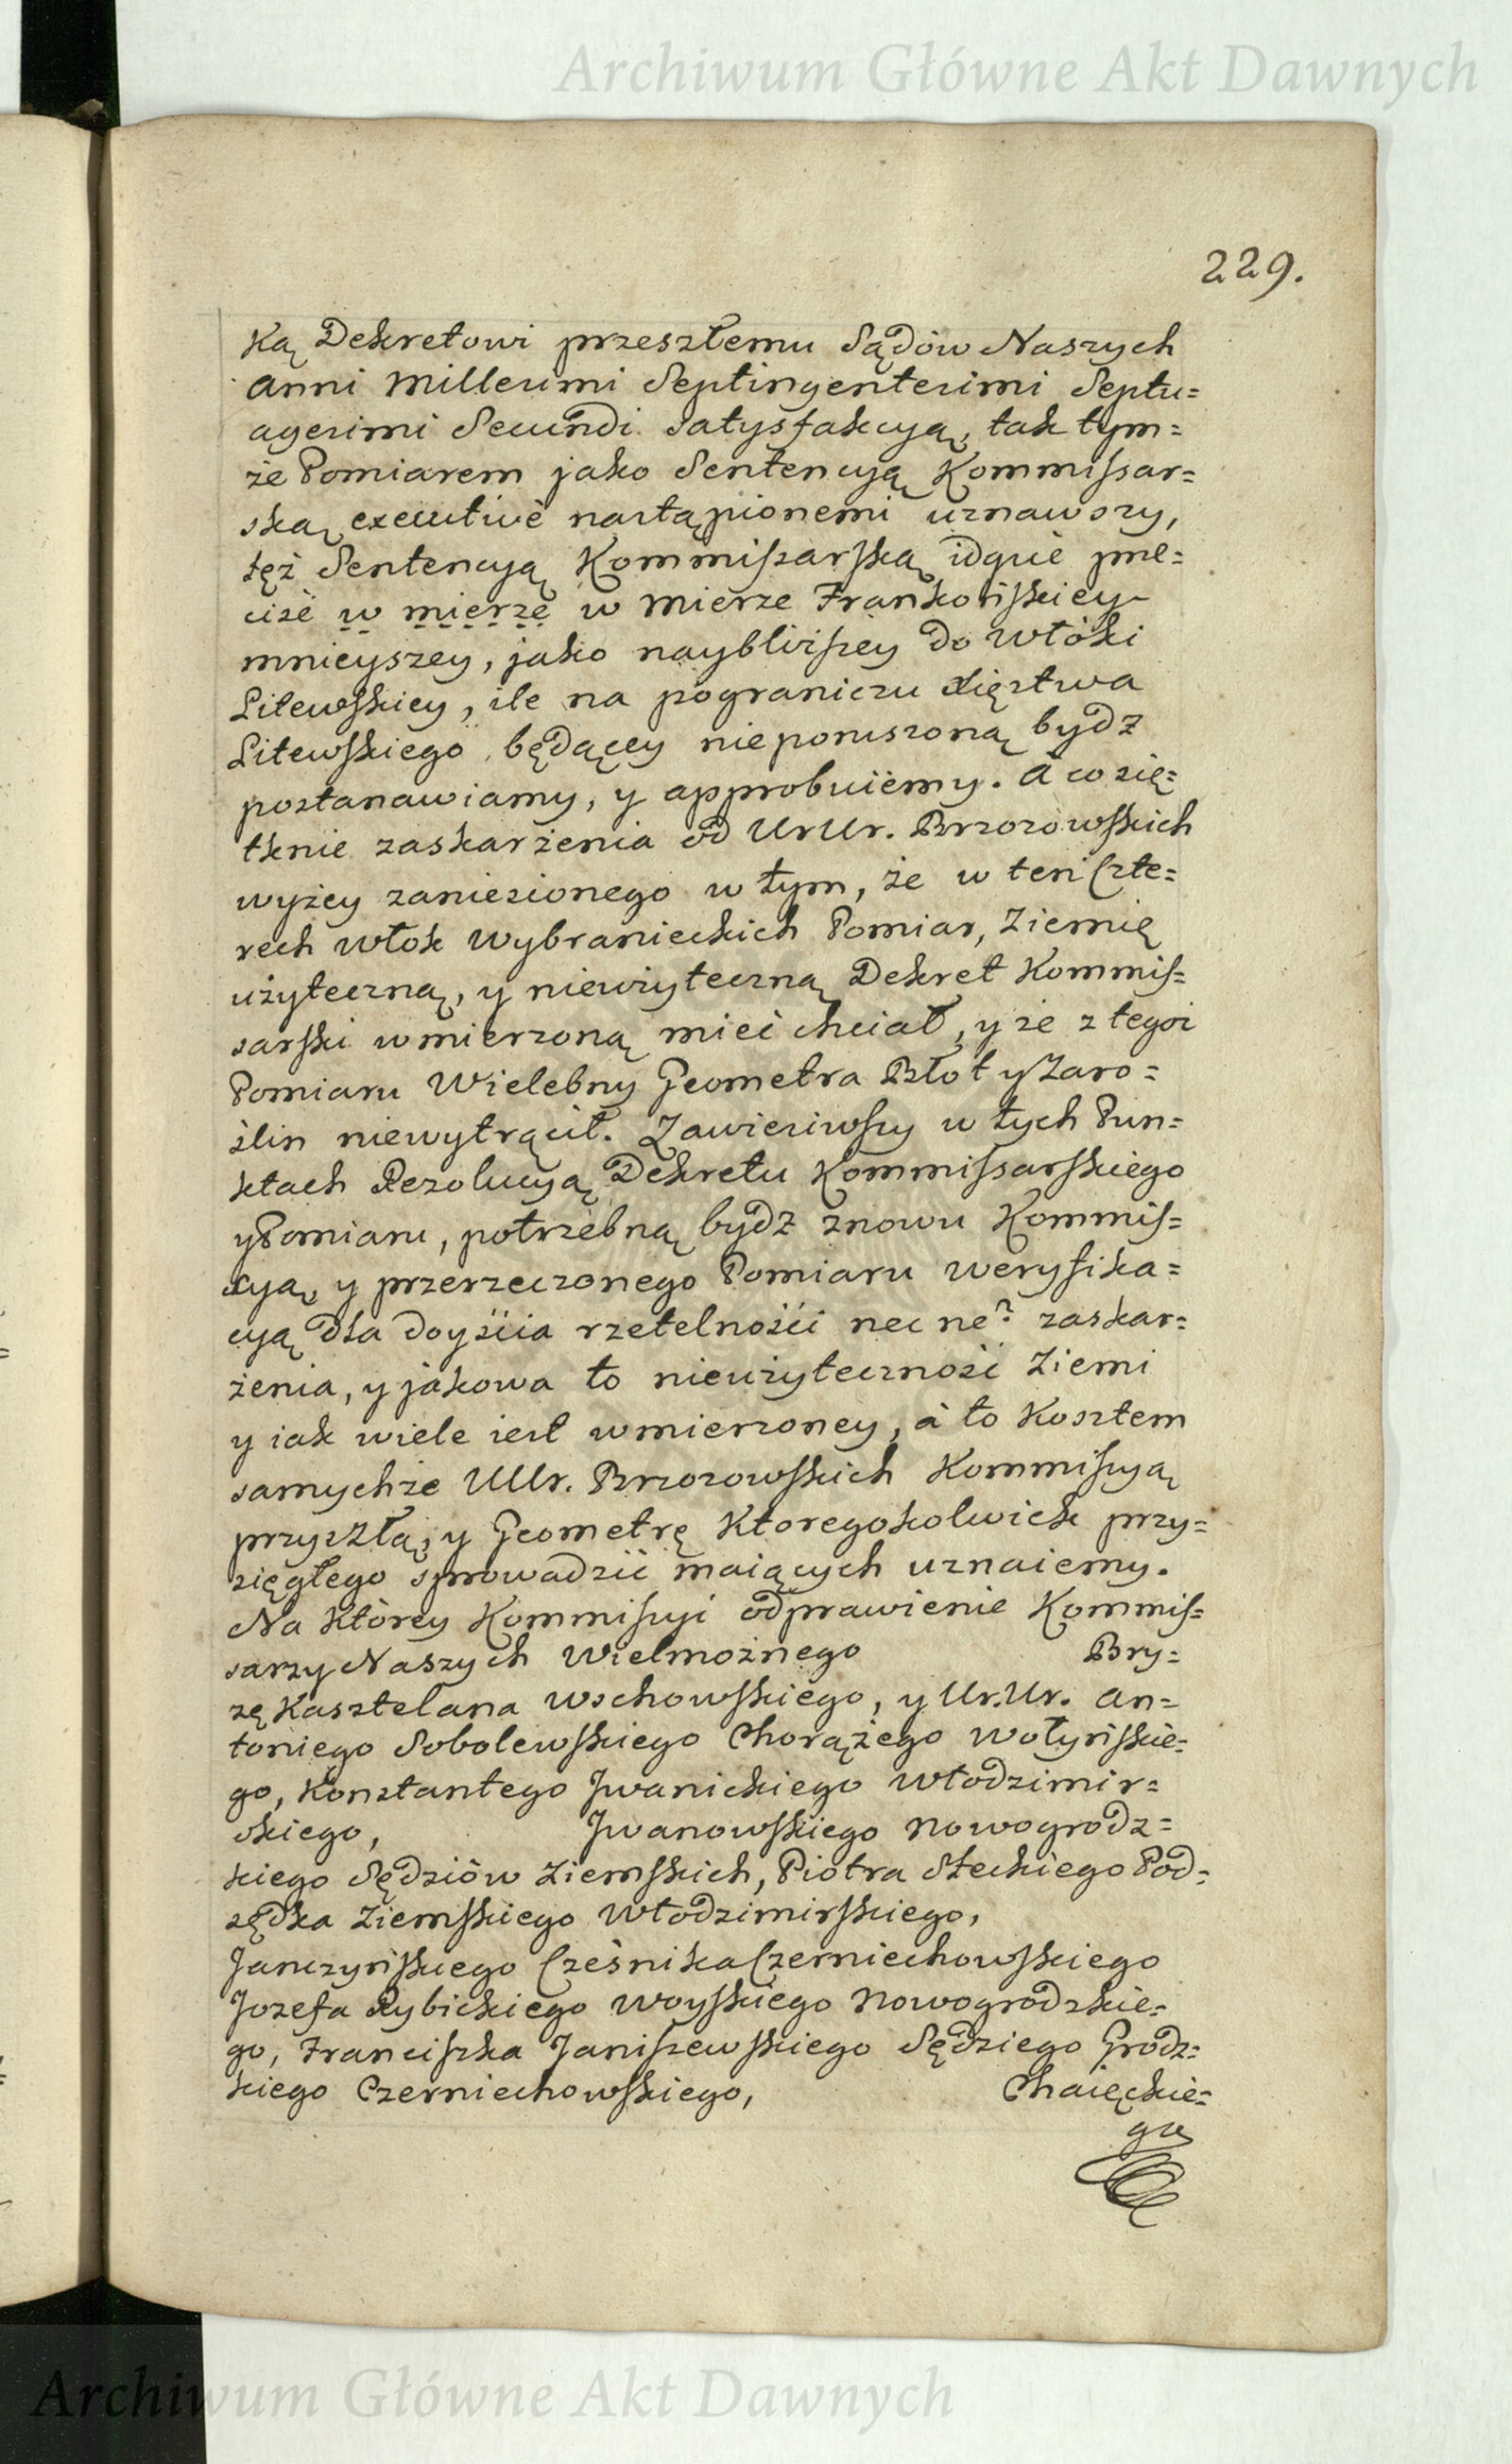 Archiwum Główne Akt Dawnych
229.
Ką Dekretowi przeszłemu Sądów Naszych
Anni Millesimi Septingentesimi Septu=
agesimi Secundi satysfakcyą, tak tym=
że Pomiarem jako Sentencyą Kommissar=
ską executivè nastąpionemi uznawszy,
tęż Sentencyą Kommissarską idque prae=
cise w mierze w Mierze Frankońskiey
mnieyszey, jako naybliższey do Włóki
Litewskiey, ile na pograniczu Xięstwa
Litewskiego będącey nieporuszoną bydz
postanawiamy, y approbuiemy. A co się=
tknie zaskarżenia od UrUr. Brzozowskich
wyżey zaniesionego w tym, że w ten Czte=
rech Włok Wybranieckich Pomiar, Ziemię
użyteczną, y nieużyteczną Dekret Kommis=
sarski wmierzoną mieć chciał, y że z tegoż
Pomiaru Wielebny Geometra Błot y Zaro=
ślin niewytrącił. Zawiesiwszy w tych Pun=
ktach Rezolucyą Dekretu Kommissarskiego
y Pomiaru, potrzebną bydz znowu Kommis=
syą, y przerzeczonego Pomiaru weryfika=
cyą dla doyścia rzetelności nec ne? zaskar=
żenia, y jakowa to nieużyteczność Ziemi
y iak wiele iest wmierzoney, à to Kosztem
samychże UUr. Brzozowskich Kommissyą
przyszłą, y Geometrę Ktoregokolwiek przy=
sięgłego sprowadzić maiących uznaiemy.
Na Którey Kommissyi odprawienie Kommis=
sarzy Naszych Wielmożnego Bry=
zę Kasztelana Wschowskiego, y Ur.Ur. An=
toniego Sobolewskiego Chorążego Wołyńskie=
go, Konstantego Jwanickiego Włodzimir=
skiego, Jwanowskiego Nowogrodz=
kiego Sędziów Ziemskich, Piotra Steckiego Pod=
sędka Ziemskiego Włodzimirskiego,
Janczyńskiego Cześnika Czerniechowskiego
Jozefa Rybickiego Woyskiego Nowogrodzkie=
go, Franciszka Janiszewskiego Sędziego Grodz=
kiego Czerniechowskiego, Chaięckie=
go
Archiwum Główne Akt Dawnych